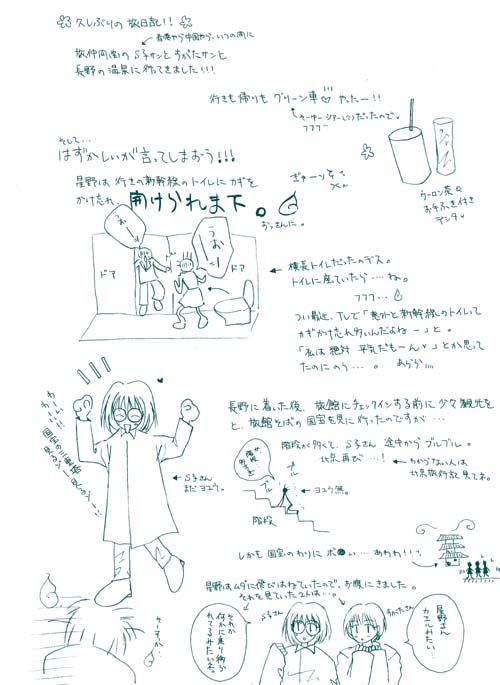 久しぶりの旅日記!!
香港やら中国から、いつの間に
旅仲間のS子サンとすがたサンと
長野の温泉に行ってきました!!!
行きも帰りもグリーン車 やったー!!
だったので。
フフフー
そして…
はずかしいが言ってしまおう!!!
星野は行きの新幹線のトイレにカギを
かけ忘れ、開けられま下。
おっさんに。
ぎゃーッ
ウーロン茶
お手ふき付き
デシタ
うおーっ
うおーっ
ドア
ドア
横長トイレだったのデス。
トイレに座ていたら……ね。
フフフ…
つい最近、TVで「意外と新幹線のトイレって
カギかけ忘れ多いんだよねー」と。
「私は絶対 平気だもーん♥」とか思って
たのにのう…。
あらら
長野に着いた後、旅館にチェックインする前に少々観光を
と、旅館そばの国宝を見に行ったのですが…
階段が多くて、S子さん 途中からブルブル。
北京再び…!
わからない人は
北京旅行記見てネ。
わーいわーい!!
国宝の三重塔
見るゾー見るゾー!!
S子さん
まだヨユウ。
ブル
ブル
ヨユウ無。
階段
しかも国宝のわりにボ●い…あわわ!!
星野はムダに飛びはねていたので、お腹にきました。
それを見ていた2人は…。
そーすか…
それか
何かに乗り物か
れてるみたいネ。
S子さん
すがたさん
星野さん
カエルみたい…